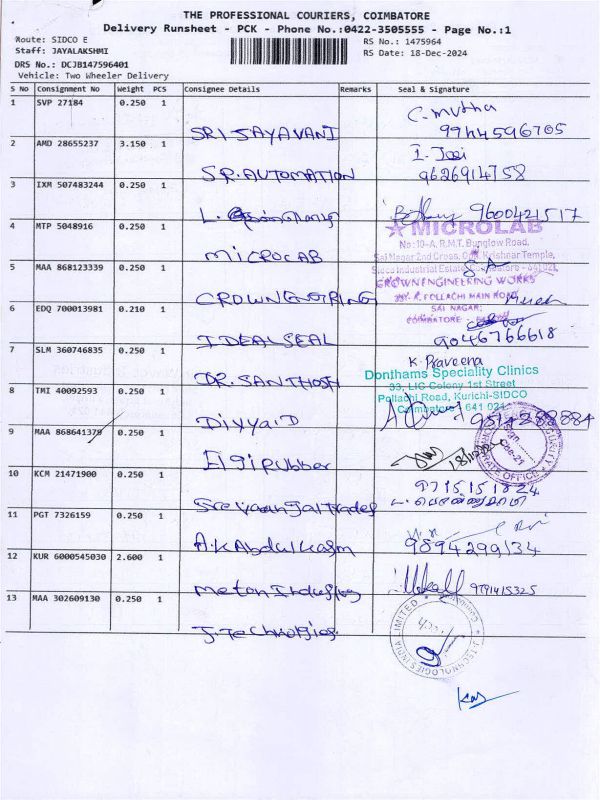 THE PROFESSIONAL COURIERS, COIMBATORE
Delivery Runsheet - PCK - Phone No.:0422-3505555 - Page No.:1
Route: SIDCO E
RS No.: 1475964
Staff: JAYALAKSHMI
RS Date: 18-Dec-2024
DRS No.: DCJB147596401
Vehicle: Two Wheeler Delivery
S No Consignment No Weight PCS Consignee Details Remarks Seal & Signature
1 SVP 27184 0.250 1
SRI JAYAVANI
C. Mutha
9944596705
2 AMD 28655237 3.150 1
S.R. AUTOMATION
I. Josi
9626914758
3 IXM 507483244 0.250 1
9600421517
4 MTP 5048916 0.250 1
MICROLAB
MICROLAB
No:10-A, R.M.T. Bunglow Road,
Sai Nagar 2nd Cross, Krishnar Temple,
Sidco Industrial Estate, Coimbatore - 641021.
5 MAA 868123339 0.250 1
CROWN ENGRING
S.A
CROWN ENGINEERING WORKS
POLLACHI MAIN ROAD
SAI NAGAR,
COIMBATORE
6 EDQ 700013981 0.210 1
IDEAL SEAL
9046766618
7 SLM 360746835 0.250 1
DR. SANTHOSH
K. Praveena
Donthams Speciality Clinics
33, LIC Colony 1st Street
Pollachi Road, Kurichi-SIDCO
Coimbatore 641 021
8 TMI 40092593 0.250 1
Divya.D
9514288884
9 MAA 868641379 0.250 1
Elgi rubber
OFFICE
10 KCM 21471900 0.250 1
9715151824
11 PGT 7326159 0.250 1
A.K Abdul Kasm
9894299134
12 KUR 6000545030 2.600 1
9791415325
13 MAA 302609130 0.250 1
TECHNOLOGIES INDIA LIMITED